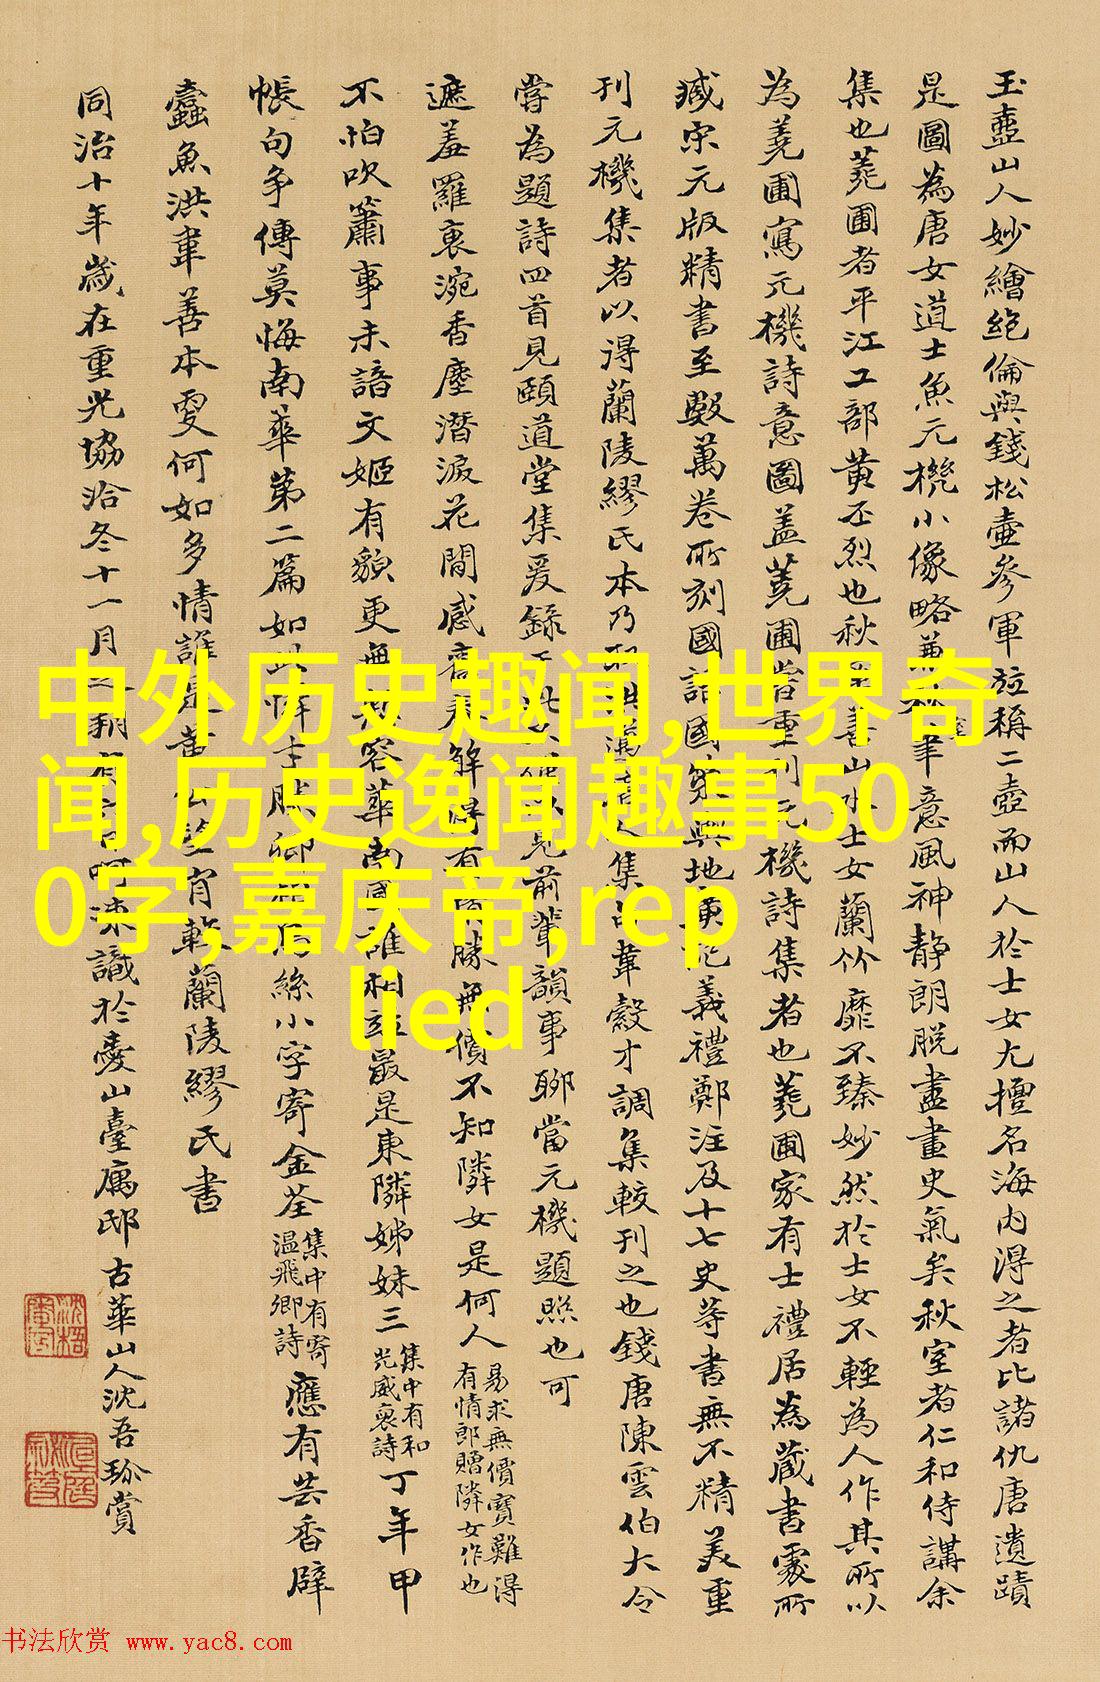 玉壺山人妙繪絕倫與錢松壺參軍竝稱二壺而山人於士女尤擅名海內得之者比諸仇唐遺蹟
是圖為唐女道士魚元機小像略兼秋室筆意風神靜朗脫盡畫史氣矣秋室者仁和侍講余
集也蕘圃者平江工部黃丕烈也秋室善山水士女蘭竹靡不臻妙然於士女不輕為人作其所以
為蕘圃寫元機詩意圖蓋蕘圃嘗重刊元機詩集者也蕘圃家有士禮居為藏書處所
臧宋元版精書至數萬卷所刻國語國策輿地廣記義禮鄭注及十七史等書無不精美重
刊元機集者以得蘭陵繆氏本乃 集 韋縠才調集較刊之也錢唐陳雲伯大令
嘗為題詩四首見頤道堂集爰錄 見前輩韻事聊當元機題照也可
遮羞羅裹涴香塵潛淚花間感舊春解得有 勝無價不知隣女是何人
易求無價寶難得
有情郎贈隣女作也
不怕吹簫事未諳文姬有貌更無 容華南國誰相竝最是東隣姊妹三
集中有和
光威裒詩
丁年甲
帳句爭傳莫悔南華第二篇如此 絲小字寄金荃
集中有寄
溫飛卿詩
應有芸香辟
蠹魚洪韋善本更何如多情誰 黃 肯較蘭陵繆氏書
同治十年歲在重光協洽冬十一月 凍識於臺山臺寓邸古華山人沈吾珎賞
中外历史趣闻,世界奇
闻,历史逸闻趣事50
0字,嘉庆帝,rep
lied
书法欣赏 www.yac8.com